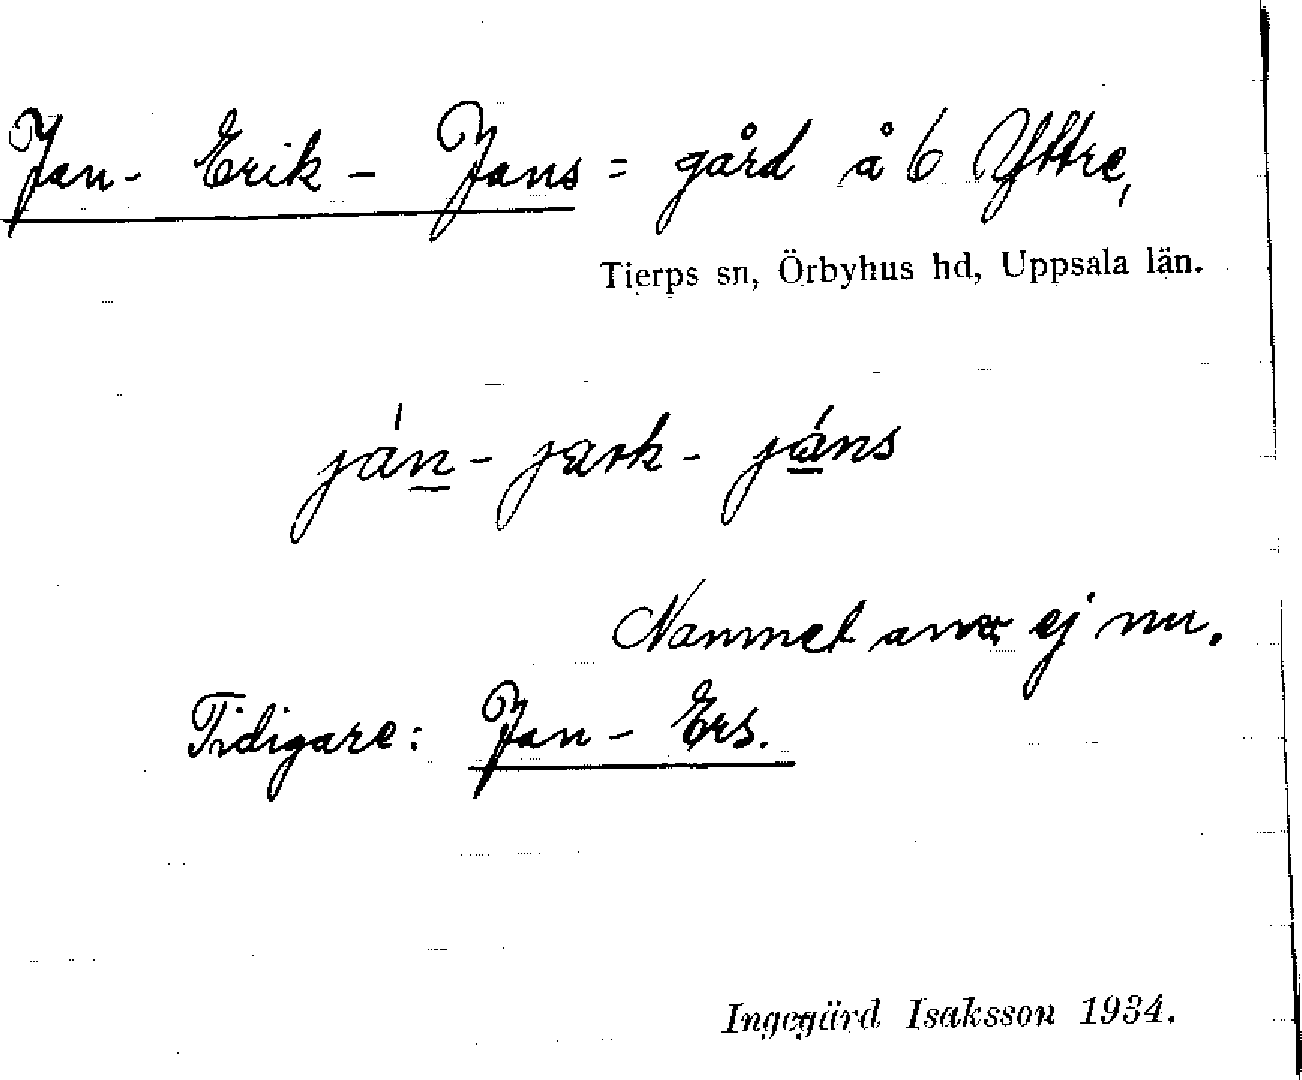 Jan - Erik - Jans = gård å 6 Yttre,
Tierps sn, Örbyhus hd, Uppsala län.
ján - jærk - jáns
Namnet anv. ej nu.
Tidigare: Jan - Ers.
Ingegärd Isaksson 1934.